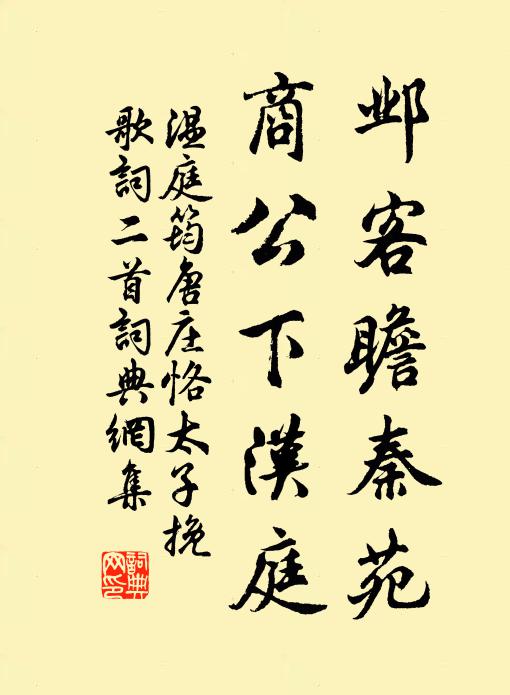 邺客瞻秦苑
商公下漢庭
温庭筠唐庄恪太子挽
歌詞二首詞典網集
詞典网印